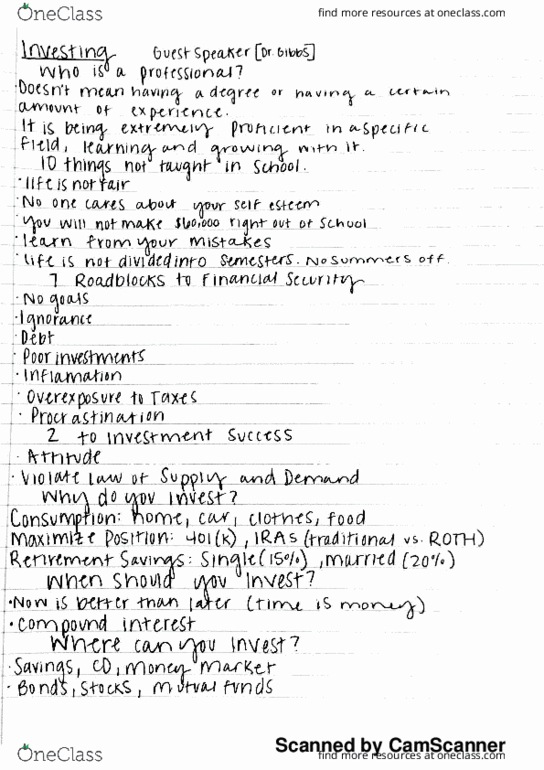 OneClass
find more resources at oneclass.com
Investing Guest Speaker [Dr. Gibbs]
Who is a professional?
·Doesn't mean having a degree or having a certain
amount of experience.
It is being extremely proficient in a specific
field, learning and growing with it.
10 things not taught in School.
·life is not fair
·No one cares about your self esteem
·You will not make $60,000 right out of School
·learn from your mistakes
·life is not divided into semesters. No summers off.
7 Roadblocks to Financial Security
·No goals
·Ignorance
·Debt
·Poor investments
·Inflamation
·Overexposure to Taxes
·Procrastination
2 to Investment Success
·Attitude
·Violate Law of Supply and Demand
Why do you invest?
Consumption: home, car, clothes, food
Maximize Position: 401(k), IRAs (traditional vs. ROTH)
Retirement Savings: Single (15%), married (20%)
When should you invest?
·Now is better than later (time is money)
·Compound interest
Where can you invest?
·Savings, CD, money market
·Bonds, stocks, mutual funds
Scanned by CamScanner
OneClass
find more resources at oneclass.com